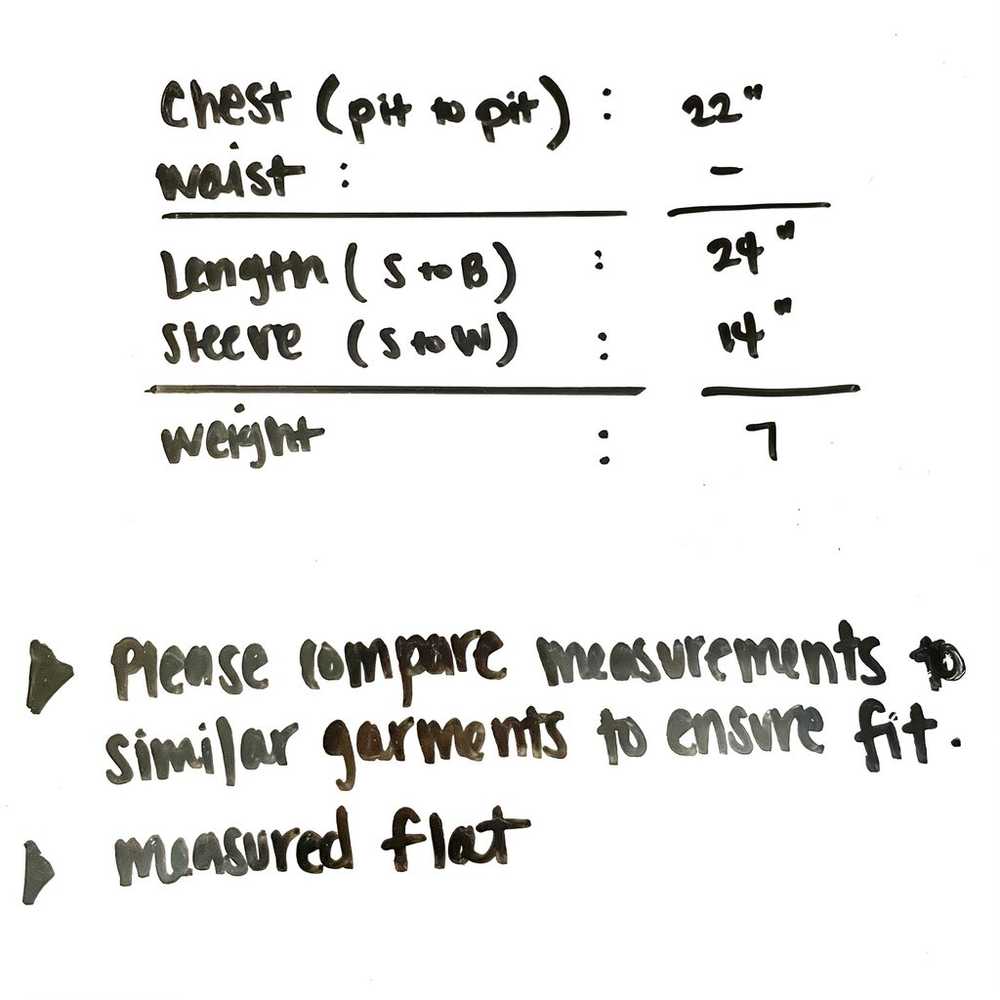 Chest (pit to pit) : 22"
waist : -
Length (S to B) : 24"
Sleeve (S to W) : 14"
weight : 7
▶ Please compare measurements to
similar garments to ensure fit.
▶ measured flat